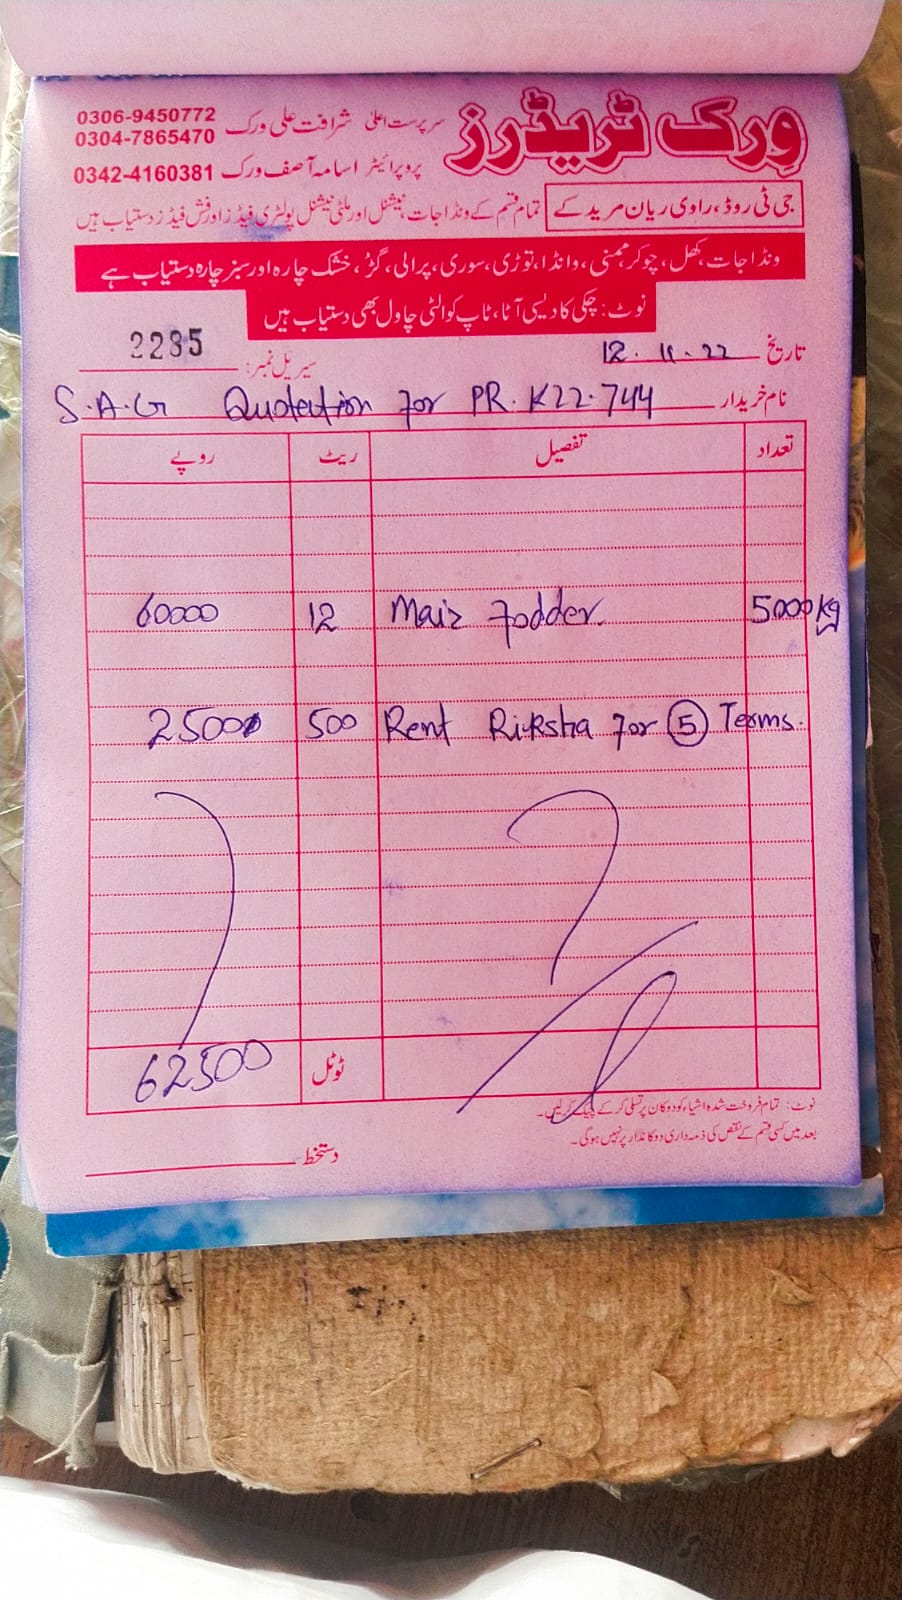 ورک ٹریڈرز
سرپرست اعلیٰ شرافت علی ورک 0306-9450772
0304-7865470
پروپرائیٹر اسامہ آصف ورک 0342-4160381
جی ٹی روڈ، راوی ریان مریدکے
تمام قسم کے ونڈا جات، نیشنل اور ملٹی نیشنل پولٹری فیڈز اور فش فیڈز دستیاب ہیں
ونڈا جات، کھل، چوکر، مکئی، وانڈا، توڑی، سوری، پرالی، گڑ، خشک چارہ اور سبز چارہ دستیاب ہے
نوٹ: چکی کا دیسی آٹا، ٹاپ کوالٹی چاول بھی دستیاب ہیں
تاریخ 12.11.22 سیریل نمبر: 2235
نام خریدار S.A.G Quotation for PR. K22.744
تعداد تفصیل ریٹ روپے
5000 kg Maiz fodder. 12 60000
Rent Riksha for 5 Terms. 500 2500
ٹوٹل 62500
نوٹ: تمام فروخت شدہ اشیاء کو دوکان پر تسلی کر کے چیک کر لیں۔
بعد میں کسی قسم کے نقص کی ذمہ داری دوکاندار پر نہیں ہوگی۔
دستخط